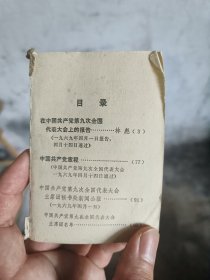 目录
在中国共产党第九次全国
代表大会上的报告…………林彪(3)
(一九六九年四月一日报告,
四月十四日通过)
中国共产党章程…………(77)
(中国共产党第九次全国代表大会
一九六九年四月十四日通过)
中国共产党第九次全国代表大会
主席团秘书处新闻公报……
(一九六九年四月一日)
中国共产党第九次全国代表大会
主席团名单